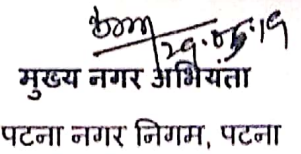 29.05.19
मुख्य नगर अभियंता
पटना नगर निगम, पटना